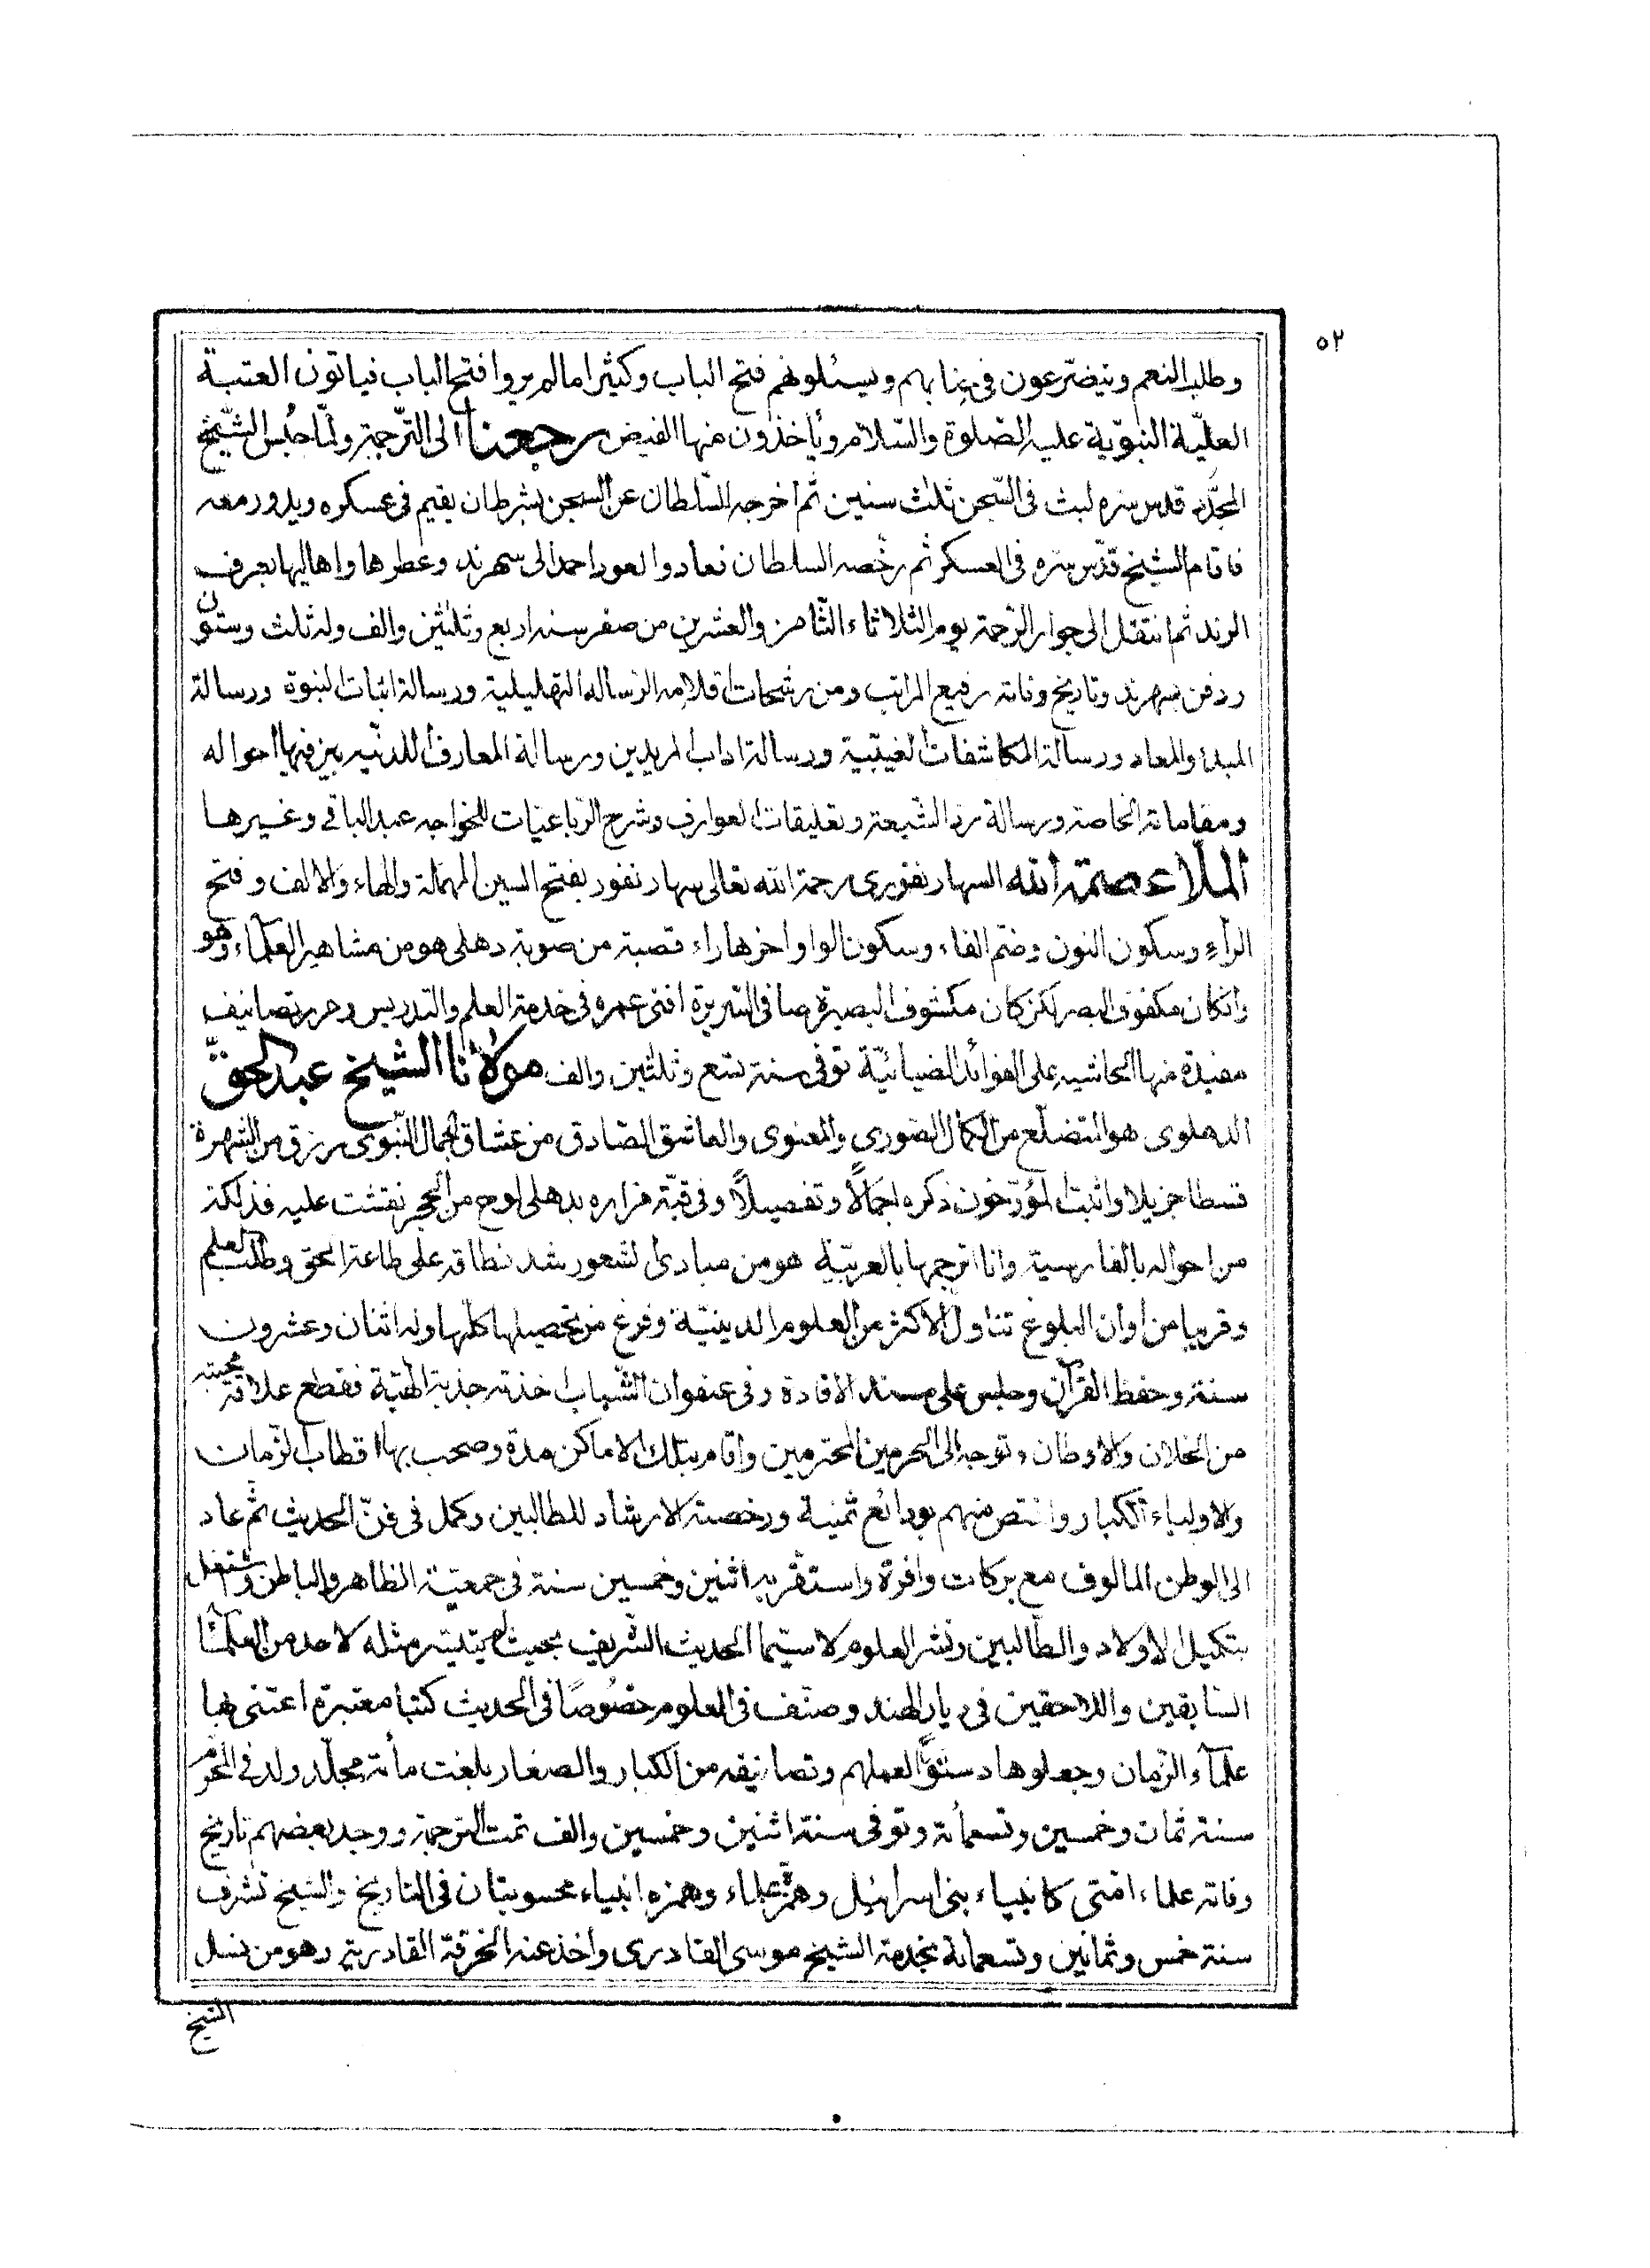 ٥٢
وطلب النعم ويتضرعون في بابهم ويسئلونهم فتح الباب وكثيرا ما لم يروا فتح الباب فياتون العتبة
العليّة النبويّة عليه الصّلوة والسّلام ويأخذون منها الفيض رجعنا الى التّرجمة ولمّا حُبس الشّيخ
المجدّد قدس سره لبث فى السّجن ثلث سنين ثم أخرجه السّلطان عن السجن بشرط ان يقيم فى عسكره ويدور معه
فاقام الشيخ قدّس سّره فى العسكر ثم رخّصه السلطان فعاد والعود احمد الى سهرند وعطرها واهاليها بعرف
الرند ثم انتقل الى جوار الرّحمة يوم الثلاثاء الثّامن والعشرين من صفر سنه اربع وثلثين والف وله ثلث وستون
ودفن بسهرند وتاريخ وفاته رفيع المراتب ومن رشحات اقلامه الرساله التهليلية ورسالة اثبات النبوة ورسالة
المبدء والمعاد ورسالة المكاشفات الغيبية ورسالة اداب المريدين ورسالة المعارف اللدنيه بين فيها احواله
ومقاماته الخاصة ورسالة رد الشّيعة وتعليقات العوارف وشرح الرّباعيّات للخواجه عبد الباقى وغيرها
الملّا عصمة الله السهارنفورى رحمة الله تعالى سهارنفور بفتح السين المهملة والهاء والالف وفتح
الرآء وسكون النون وضم الفاء وسكون الواو اخرها راء قصبة من صوبة دهلى هو من مشاهير العلماء وهو
وان كان مكفوف البصر لكن كان مكشوف البصيرة صافى السّريرة افنى عمره فى خدمة العلم والتدريس وحرر تصانيف
مفيدة منها الحاشيه على الفوائد الضيائيّة توفى سنة تسع وثلثين والف مولانا الشيخ عبد الحقّ
الدهلوى هو المتضلّع من الكمال الصّورى والمعنوى والعاشق الصّادق من عشاق الجمال النّبوى رزق من الشهرة
قسطا جزيلا واثبت المؤرّخون ذكره اجمالًا وتفصيلًا وفى قبّة مزاره بدهلى لوح من الحجر نقشت عليه فذلكة
من احواله بالفارسية وانا اترجمها بالعربيّة هو من مبادئ الشعور شد نطاقه على طاعة الحق وطلب العلم
وقريبا من اوان البلوغ تناول الاكثر من العلوم الدينيّة وفرغ من تحصيلها كلّها وله اثنان وعشرون
سنة وحفظ القرآن وجلس على مسند الافادة وفى عنفوان الشّباب اخذته جذبة الهيّة فقطع علاقة محبته
من الخلان والاوطان وتوجه الى الحرمين المحترمين واقام بتلك الاماكن مدة وصحب بها اقطاب الزّمان
والاولياء الكبار واختص منهم بودائع ثمينة ورخصة الارشاد للطالبين وكمل فى فنّ الحديث ثم عاد
الى الوطن المالوف مع بركات وافرة واستقر به اثنين وخمسين سنة فى جمعيّة الظاهر والباطن واشتغل
بتكميل الاولاد والطّالبين ونشر العلوم لا سيّما الحديث الشريف بحيث لم يتيسّر مثله لاحد من العلماء
السّابقين واللاحقين فى ديار الهند وصنّف فى العلوم خصُوصًا فى الحديث كتبا معتبرة اعتنى بها
علمآء الزّمان وجعلوها دستورًا لعملهم وتصانيفه من الكبار والصغار بلغت مأته مجلّد ولد فى المحرّم
سنة ثمان وخمسين وتسعمائة وتوفى سنة اثنين وخمسين والف تمت الترجمة ووجد بعضهم تاريخ
وفاته علماء امّتى كانبياء بنى اسرائيل وهمزة علماء وهمزه انبياء محسوبتان فى التاريخ والشيخ تشرف
سنة خمس وثمانين وتسعمائة بخدمة الشيخ موسى القادرى واخذ عنه الخرقة القادرية وهو من نسل
الشيخ